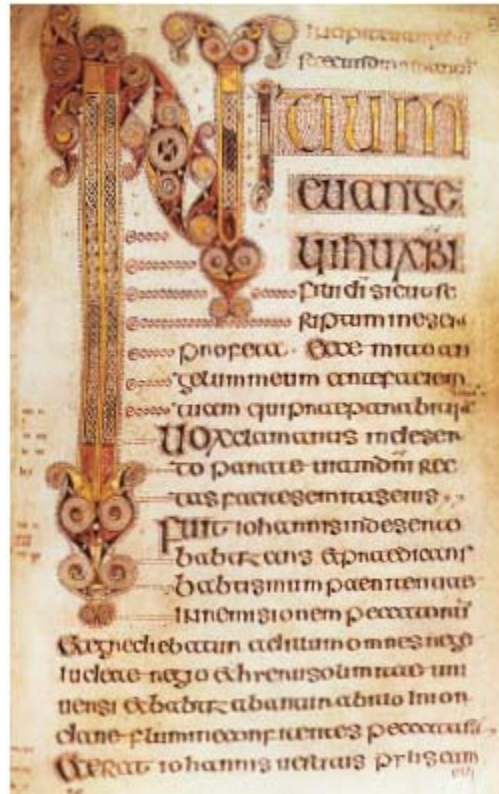 INITIUM
euange
lii ihu xpi
fili di sicut sc
riptum in esaia
profeta · Ecce mitto an
gelum meum ante faciem
tuam qui praeparabit
Uox clamantis in deser
to parate uiam dni rec
tas facite semitas eius
Fuit iohannis in deserto
babtizans & praedicans
babtismum paenitentiae
in remisionem peccatorum
Et egrediebatur ad illum omnes
iudeae regio & uni
uersi & babtizabantur ab illo in ior
dane flumine confitentes peccata
Et erat iohannis uestitus pilis cam